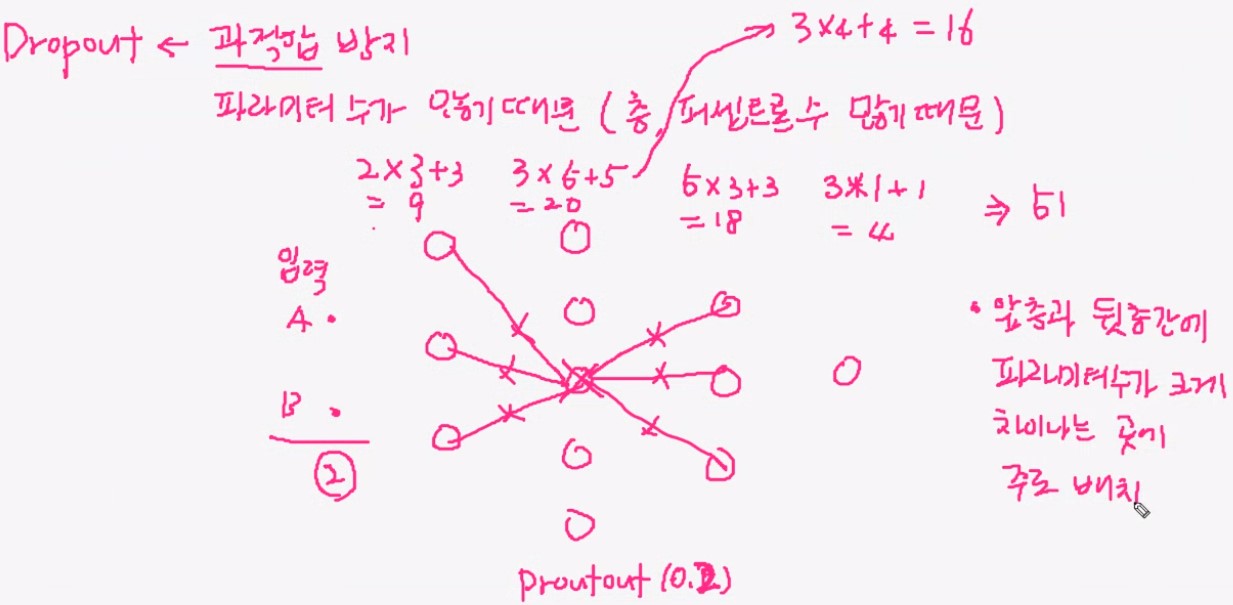 Dropout ← 과적합 방지
3×4+4 = 16
파라미터 수가 많기 때문 (층, 퍼셉트론 수 많기 때문)
2×3+3 = 9
3×5+5 = 20
5×3+3 = 18
3*1+1 = 4
⇒ 51
입력
A •
B •
②
• 앞층과 뒷층간에
파라미터수가 크게
차이나는 곳에
주로 배치
Proutout (0.2)